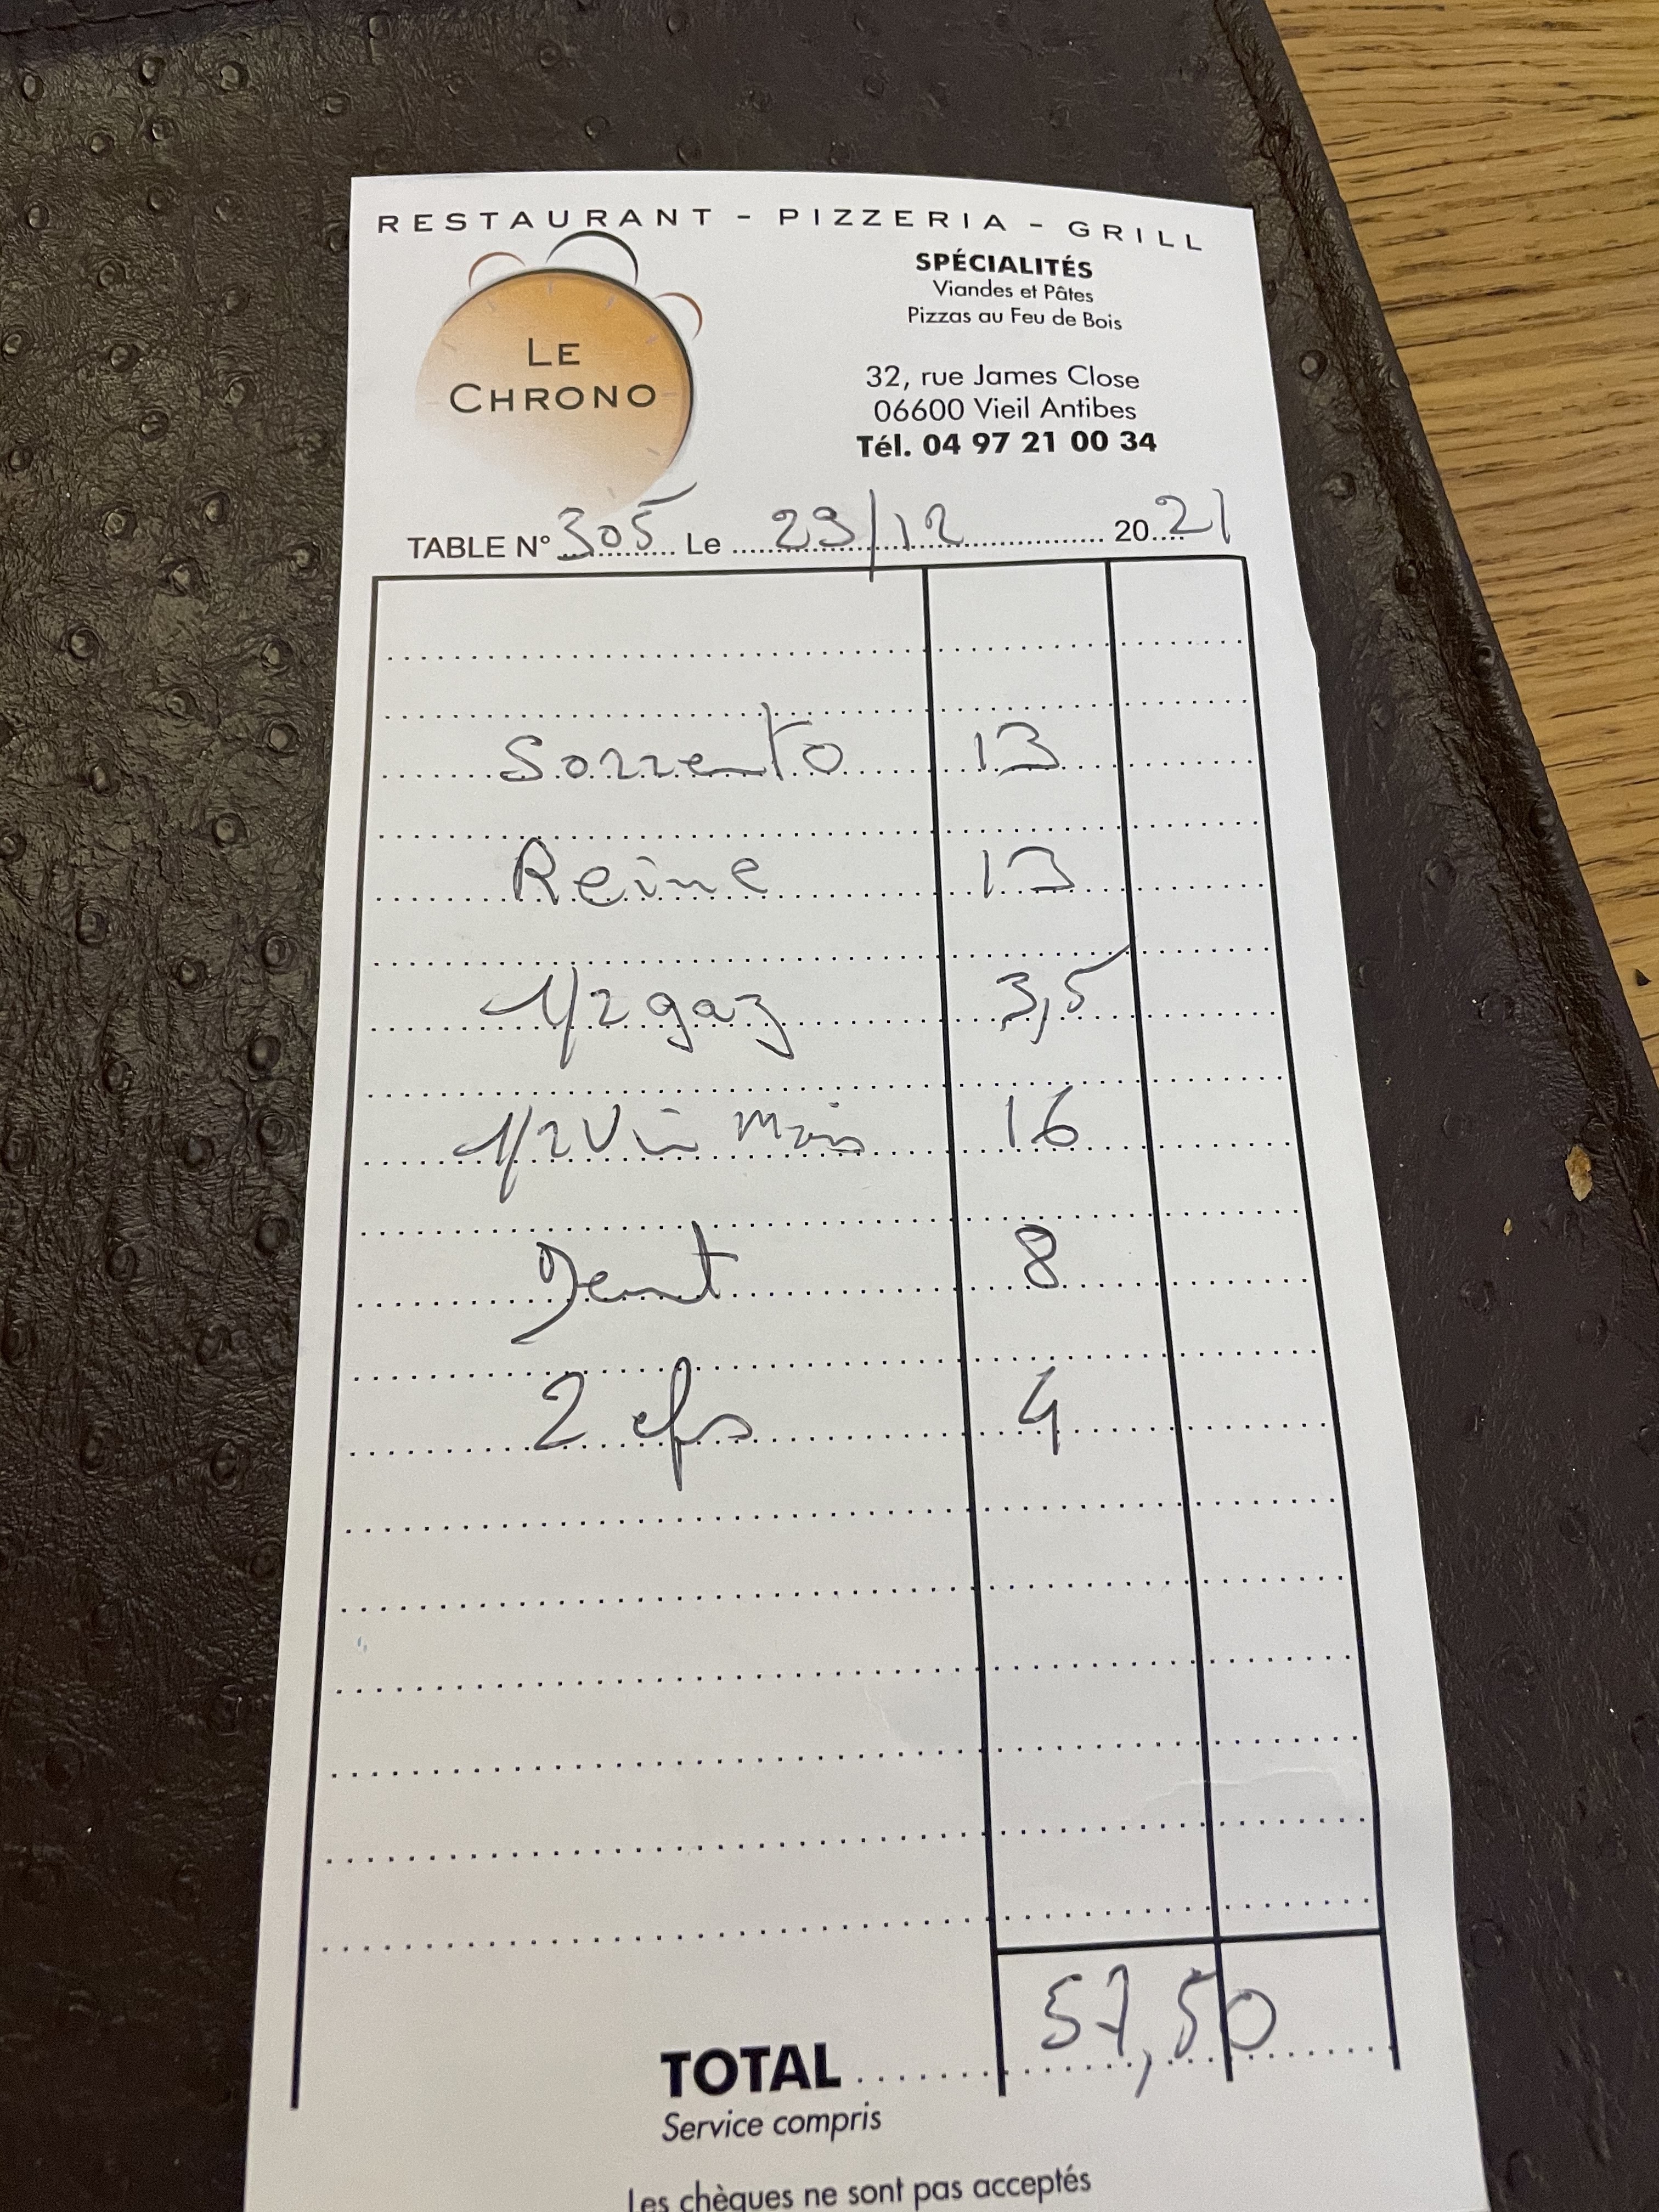 RESTAURANT - PIZZERIA - GRILL
LE
CHRONO
SPÉCIALITÉS
Viandes et Pâtes
Pizzas au Feu de Bois
32, rue James Close
06600 Vieil Antibes
Tél. 04 97 21 00 34
TABLE N° 305 Le 29/12 2021
Sorrento 13
Reine 13
1/2 gaz 3,5
1/2 Vin 16
8
2 cfs 4
TOTAL 57,50
Service compris
Les chèques ne sont pas acceptés